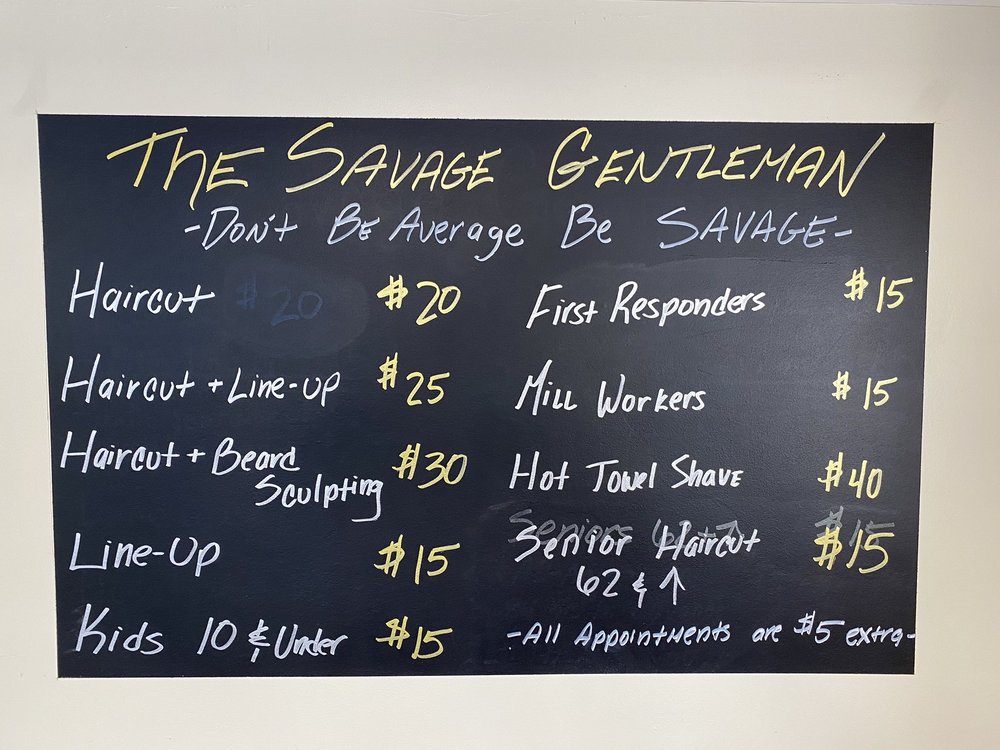 THE SAVAGE GENTLEMAN
-DON'T BE Average Be SAVAGE-
Haircut $20 $20
Haircut + Line-up $25
Haircut + Beard
Sculpting $30
Line-Up $15
Kids 10 & Under $15
First Responders $15
Mill Workers $15
Hot Towel Shave $40
Seniors 62 + ↑ $15
Senior Haircut $15
62 & ↑
-All Appointments are $5 extra-